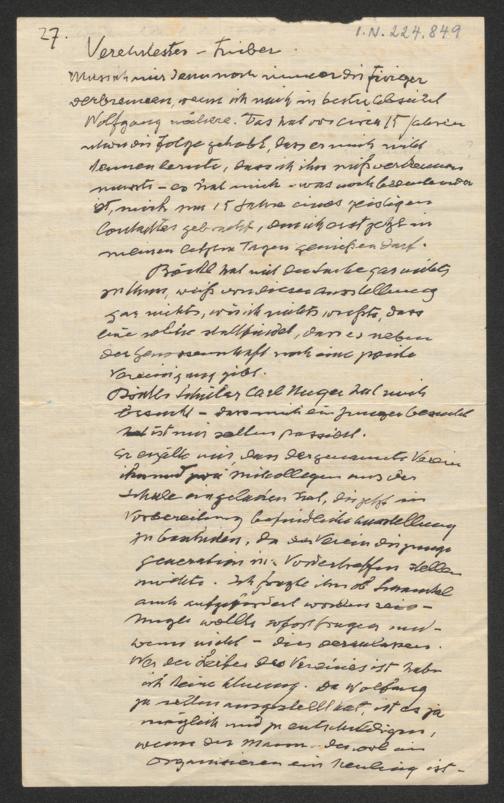 27.
I.N. 224.849
Verehrtester – Lieber.
Muss ich mir denn noch immer die Finger
verbrennen, wenn ich mich in bester Absicht
Wolfgang nähere. Das hat vor circa 15 Jahren
die Folge gehabt, dass er mich nicht
kennen lernte, dass ich ihn missverkennen
musste – es hat mich – was noch bedeutender
ist, mich um 15 Jahre eines geistigen
Contactes gebracht, den ich erst jetzt in
meinen letzten Tagen genießen darf.
hat mit der Sache gar nichts
zu thun, weiß von dieser Ausstellung
gar nichts, wie ich nichts wusste, dass
eine solche stattfindet, dass es neben
der Genossenschaft noch eine zweite
Vereinigung gibt.
Schüler Carl Unger hat mich
besucht – dass mich ein junger besucht
ist mir selten passiert.
Er erzählt mir dass der genannte Verein
ihn und zwei Mitkollegen aus der
Schule eingeladen hat, die jetzt in
Vorbereitung befindliche Ausstellung
zu beschicken, da der Verein die junge
Generation ins Vordertreffen stellen
möchte. Ich fragte ihn ob
auch aufgefordert worden sei –
Unger wollte sofort fragen und –
wenn nicht – dies veranlassen.
Wer der Leiter des Vereines ist habe
ich keine Ahnung. Da Wolfgang
ja selten ausgestellt hat, ist es ja
möglich und zu entschuldigen,
wenn der Mann – der wol im
Organisieren ein Neuling ist –